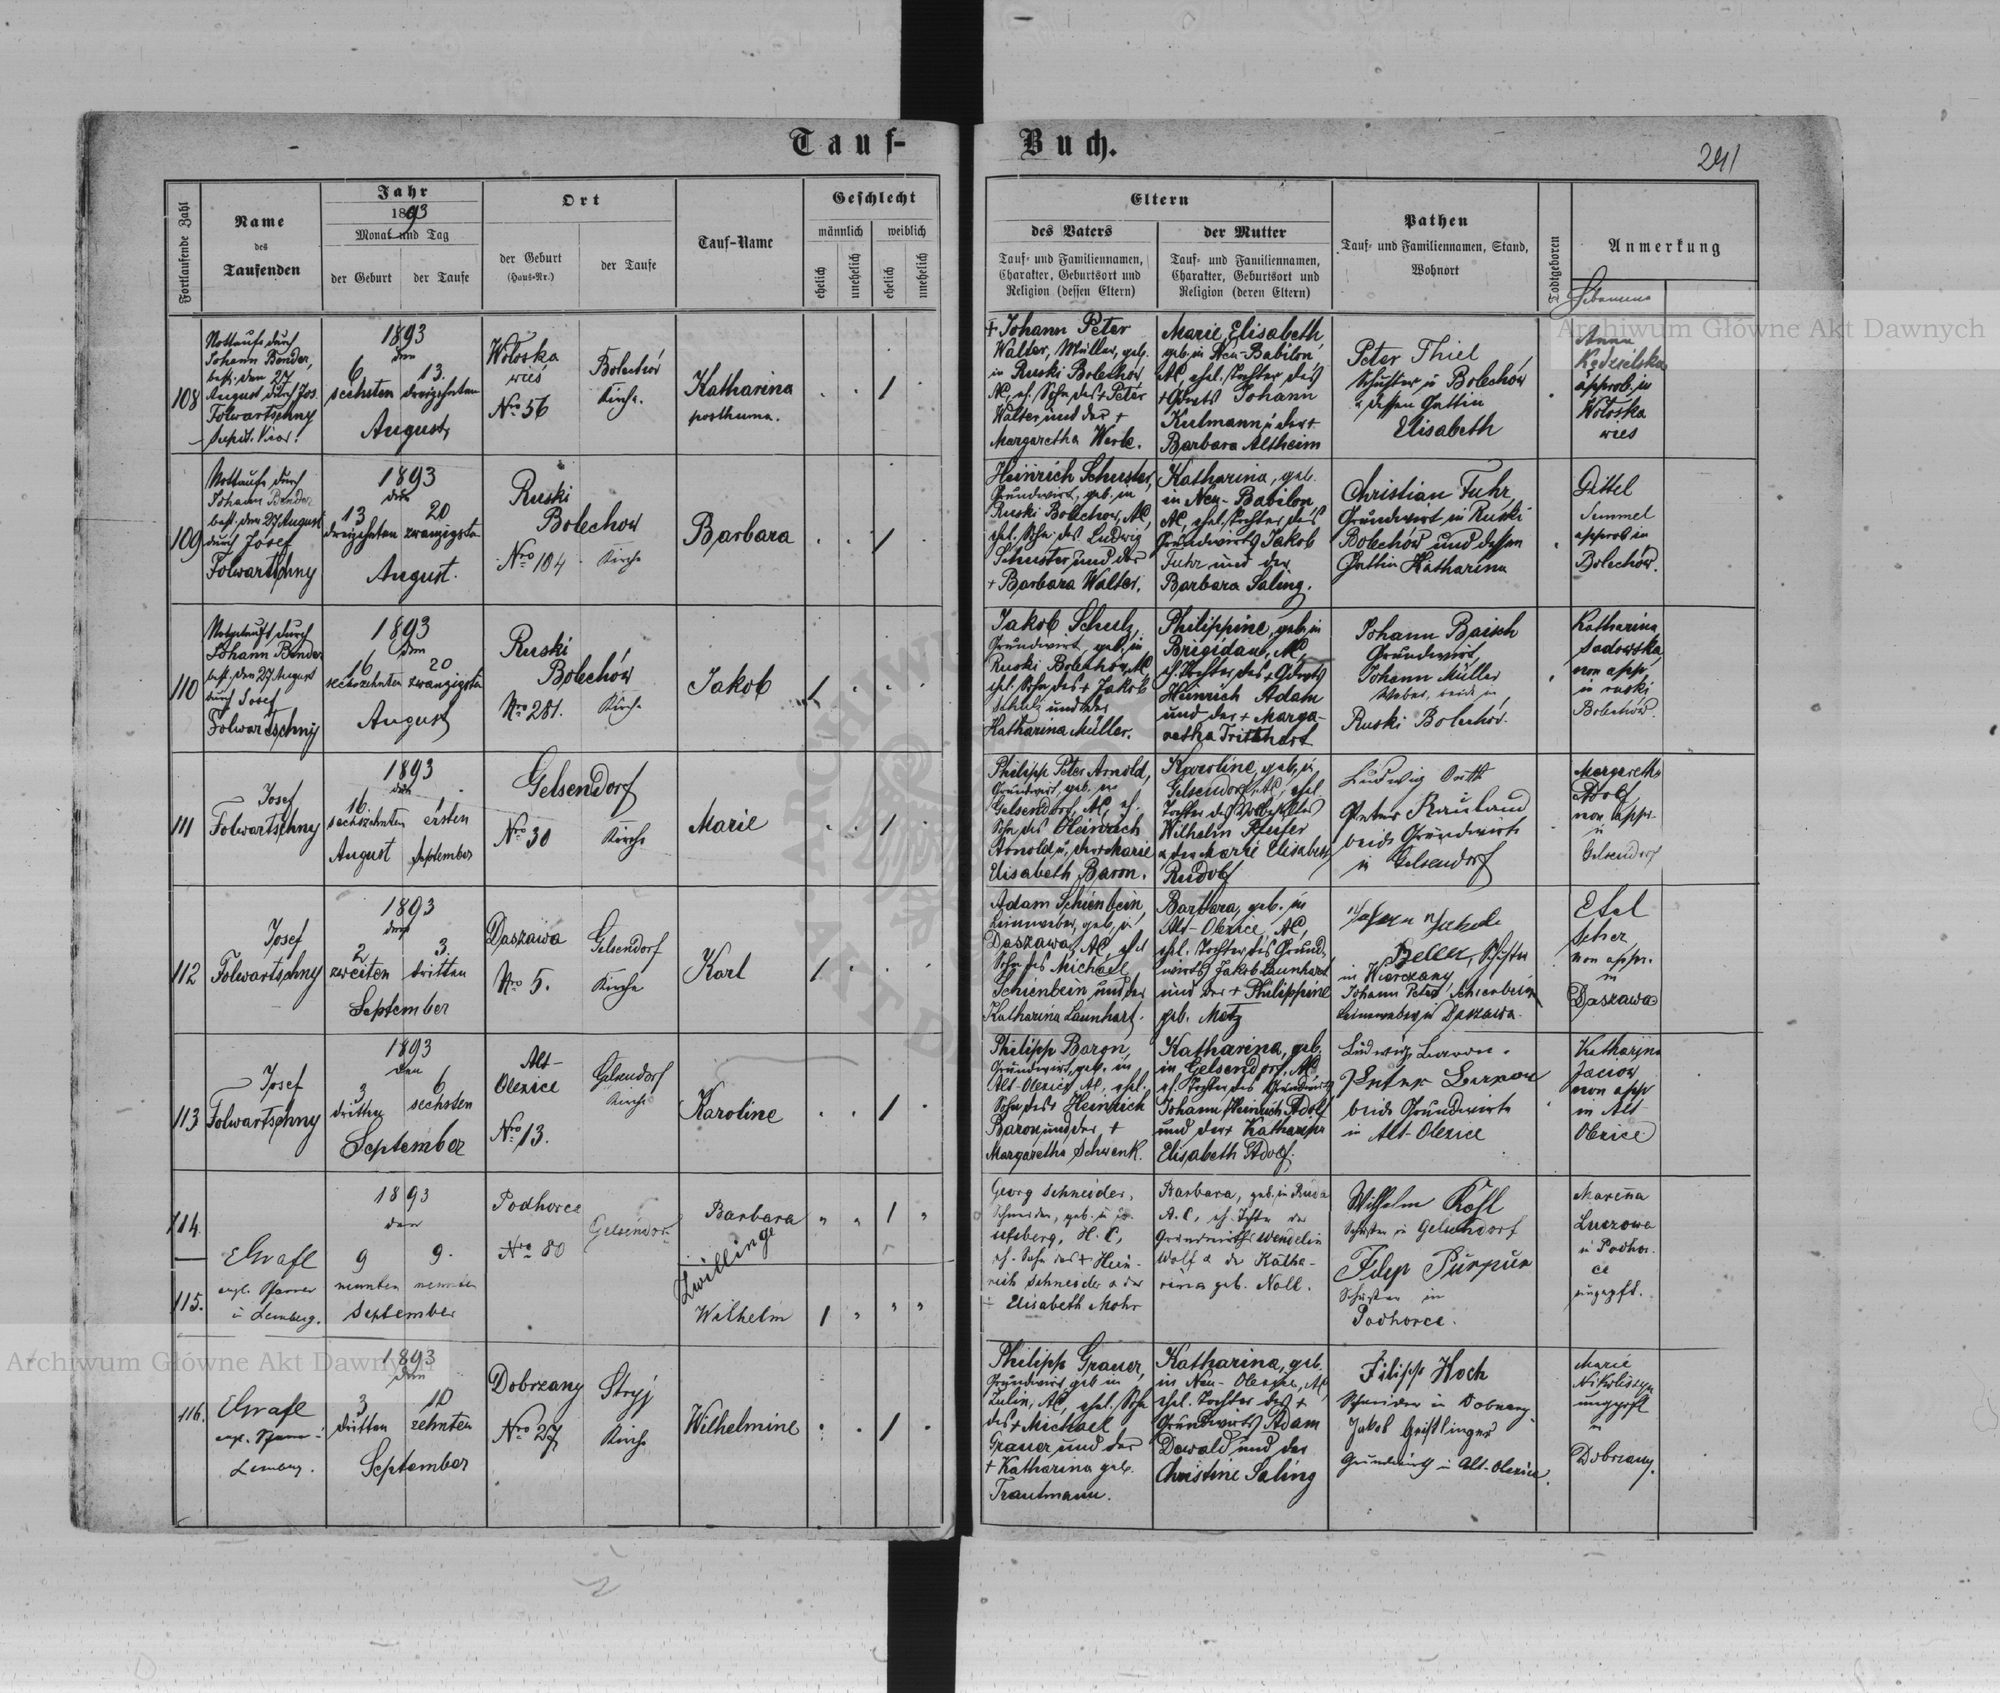 Tauf-
Buch.
241
Fortlaufende Zahl
Name
des
Taufenden
Jahr
1893
Monat und Tag
der Geburt
der Taufe
Ort
der Geburt
(Haus-Nr.)
der Taufe
Tauf-Name
Geschlecht
männlich
weiblich
ehelich
unehelich
ehelich
unehelich
Eltern
des Vaters
Tauf- und Familiennamen,
Charakter, Geburtsort und
Religion (dessen Eltern)
der Mutter
Tauf- und Familiennamen,
Charakter, Geburtsort und
Religion (deren Eltern)
Pathen
Tauf- und Familiennamen, Stand,
Wohnort
Todtgeboren
Anmerkung
108
Nottaufe durch
Johann Bender,
best. den 27
August durch Jos.
Folwartschny
1893
den
6
sechsten
13.
dreizehnten
August
Woloska
wies
Nro 56
Bolechów
Kirche.
Katharina
posthuma.
1
+ Johann Peter
Walter, Müller, geb.
in Ruski Bolechow
AC, eh. Sohn des + Peter
Walter und der +
Margaretha Werle.
Marie Elisabeth,
geb. in Neu-Babilon,
AC ehel. Tochter des
Johann
Kulmann u. der +
Barbara Altheim
Peter Thiel
Schuster in Bolechów
u dessen Gattin
Elisabeth
Anna
approb. in
Woloska
wies
109
Nottaufe durch
Johann Bender
best. den 27 August
durch Josef
Folwartschny
1893
den
13
dreizehnten
20
zwanzigsten
August.
Ruski
Bolechow
Nro 104
Kirche
Barbara
1
Heinrich Schuster,
Grundwirt, geb. in
Ruski Bolechow, AC,
ehel. Sohn des Ludwig
Schuster und der
+ Barbara Walter.
Katharina, geb.
in Neu-Babilon
AC, ehel. Tochter des
Grundwirts Jakob
Fuhr und der
Barbara Saling.
Christian Fuhr
Grundwirt in Ruski
Bolechów und dessen
Gattin Katharina
Dittel
Semmel
approb in
Bolechów.
110
Notgetauft durch
Johann Bender
best. den 27 August
durch Josef
Folwartschny
1893
den
16
sechszehnten
20
zwanzigsten
August
Ruski
Bolechów
Nro 281.
Kirche
Jakob
1
Jakob Schulz,
Grundwirt, geb. in
Ruski Bolechow, AC
ehel. Sohn des + Jakob
Schulz und der
Katharina Müller.
Philippine, geb. in
Brigidau, AC,
eh. Tochter des +
Heinrich Adam
und der + Marga-
retha Tritthart
Johann Baisch
Grundwirt,
Johann Müller
Weber, beide in
Ruski Bolechów.
Katharina
Sadowska
non app.
in ruski
Bolechów.
111
Josef
Folwartschny
1893
den
16.
sechszehnten
August
ersten
September
Gelsendorf
Nro 30
Kirche
Marie
1
Philipp Peter Arnold,
Grundwirt, geb. in
Gelsendorf, AC, eh.
Sohn des Heinrich
Arnold u. der Marie
Elisabeth Baron.
Karoline, geb. in
Gelsendorf AC, ehel.
Tochter des
Wilhelm Pfeifer
u der Marie Elisabeth
Rudolf
Ludwig
Peter Rauland
beide Grundwirte
in Gelsendorf
Margaretha
Adolf
non appr.
in
Gelsendorf
112
Josef
Folwartschny
1893
den
2
zweiten
3.
dritten
September
Daszawa
Nro 5.
Gelsendorf
Kirche
Karl
1
Adam Schienbein,
Leinweber, geb. in
Daszawa, AC, ehel
Sohn des Michael
Schienbein und der
Katharina Launhart.
Barbara, geb. in
Alt-Olexice, AC,
ehel. Tochter des Grund-
wirts Jakob Launhart
und der + Philippine
geb. Metz
Beller, Schuster
in
Johann Peter Schienbein
Leinweber in Daszawa.
Etel
non appr.
in
Daszawa
113
Josef
Folwartschny
1893
den
3
dritten
6
sechsten
September
Alt-
Olexice
Nro 13.
Gelsendorf
Kirche
Karoline
1
Philipp Baron,
Grundwirt, geb. in
Alt-Olexice, AC, ehel.
Sohn des Heinrich
Baron und der +
Margaretha Schwenk.
Katharina, geb.
in Gelsendorf, AC
eh. Tochter des Grundwirts
Johann Heinrich Adolf
und der + Katharina
Elisabeth Adolf.
Ludwig Baron.
Peter Baron
beide Grundwirte
in Alt-Olexice
Katharina
non app
in Alt
Olexice
114.
115.
Grafl
evgl. Pfarrer
in Lemberg.
1893
den
9
neunten
9.
neunten
September
Podhorce
Nro 80
Gelsendorf
Barbara
Zwillinge
Wilhelm
1
1
Georg Schneider,
Schneider, geb. in Jo-
sefsberg, H. C,
eh. Sohn des + Hein-
rich Schneider u der
Elisabeth Mohr
Barbara, geb. in
A. C, eh. Tochter des
Grundwirths Wendelin
Wolf u der Katha-
rina geb. Noll.
Wilhelm Köhl
Schuster in Gelsendorf
Filip Purpur
Schuster in
Podhorce.
Marina
in Podhor-
ce
ungepft.
116.
Grafl
evgl. Pfarrer
Lemberg.
1893
den
3
dritten
10
zehnten
September
Dobrzany
Nro 27
Stryj
Kirche
Wilhelmine
1
Philipp Grauer,
Grundwirt, geb in
Zulin, AC, ehel. Sohn
des + Michael
Grauer und der
+ Katharina geb.
Trautmann.
Katharina, geb.
in Neu-Olexice, AC
ehel. Tochter des +
Grundwirts Adam
Dewald und der
Christine Saling
Filipp Hoch
Schneider in Dobrzany
Jakob Geißlinger
Grundwirth in Alt-Olexice.
Marie
ungeprft
in
Dobrzany.
Archiwum Główne Akt Dawnych
Archiwum Główne Akt Dawnych